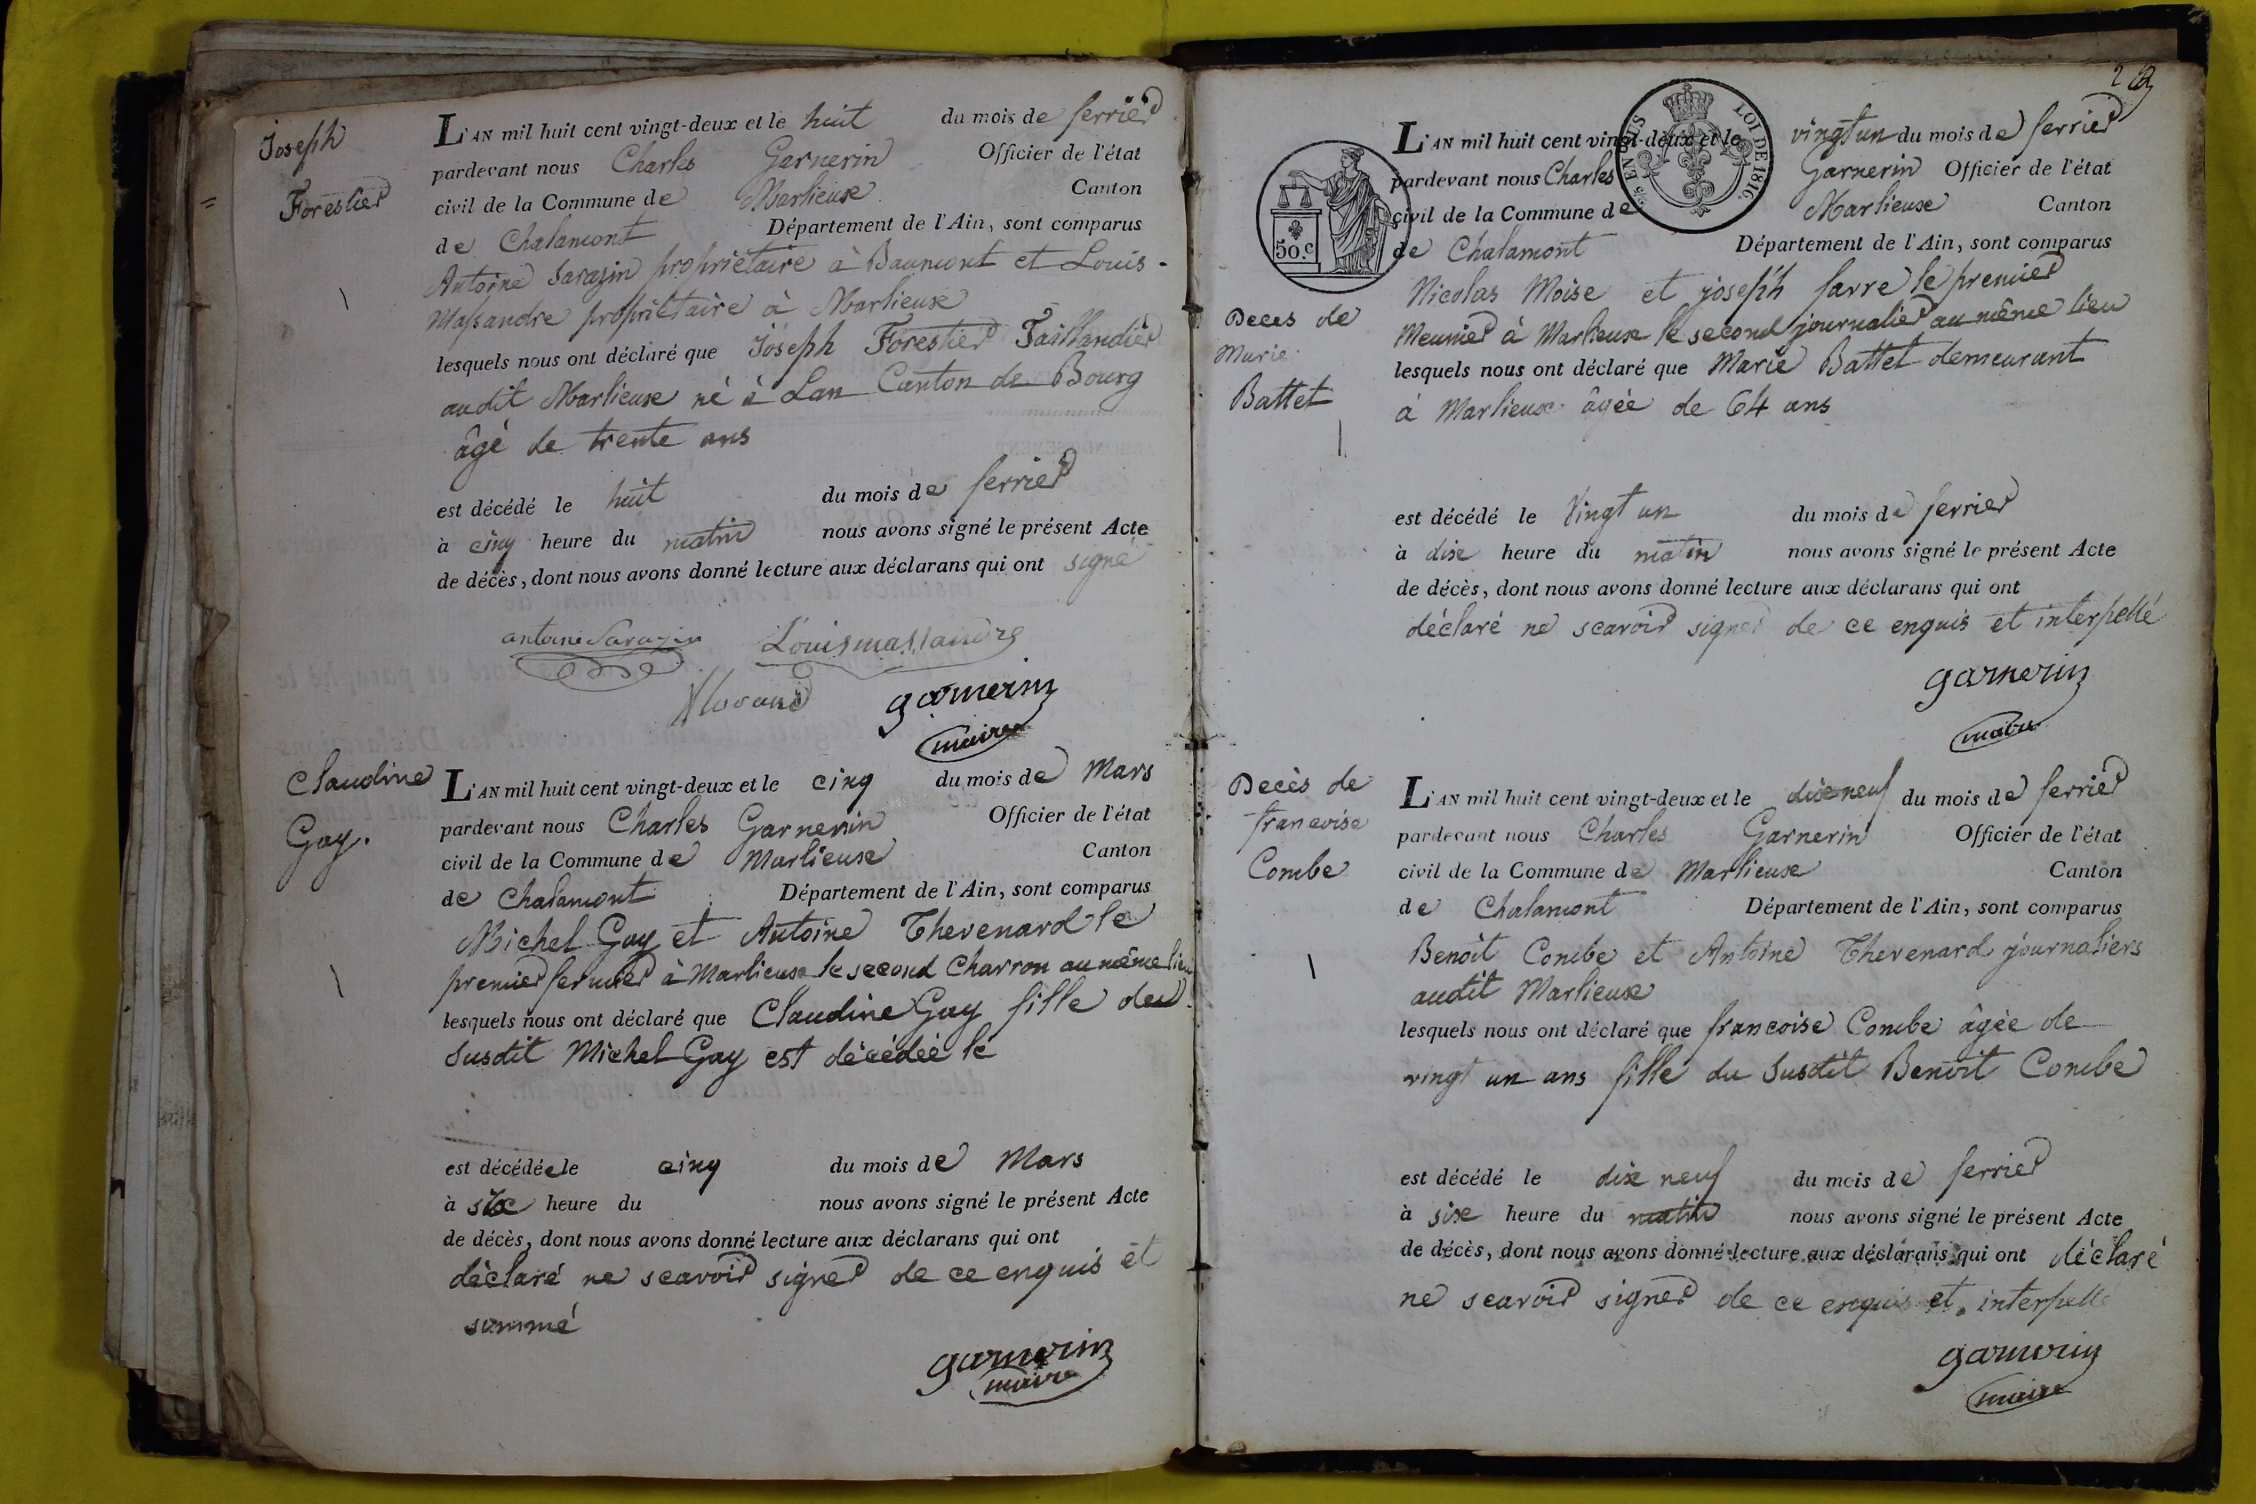 Joseph
Forestier
L'AN mil huit cent vingt-deux et le huit du mois de ferrier
pardevant nous Charles Garnerin Officier de l'état
civil de la Commune de Marlieux Canton
de Chalamont Département de l'Ain, sont comparus
Antoine Sarazin propriétaire à Baumont et Louis
Massandre propriétaire à Marlieux
lesquels nous ont déclaré que Joseph Forestier Taillandier
audit Marlieux né à Lan Canton de Bourg
âgé de trente ans
est décédé le huit du mois de ferrier
à cinq heure du matin nous avons signé le présent Acte
de décès, dont nous avons donné lecture aux déclarans qui ont signé
antoine Sarazin Louis massandre
Morand garnerin
maire
Claudine
Gay.
L'AN mil huit cent vingt-deux et le cinq du mois de Mars
pardevant nous Charles Garnerin Officier de l'état
civil de la Commune de Marlieux Canton
de Chalamont Département de l'Ain, sont comparus
Michel Gay et Antoine Thevenard le
premier fermier à Marlieux le second Charron au même lieu
lesquels nous ont déclaré que Claudine Gay fille du
susdit Michel Gay est décédée le
est décédée le cinq du mois de Mars
à six heure du nous avons signé le présent Acte
de décès, dont nous avons donné lecture aux déclarans qui ont
déclaré ne scavoir signer de ce enquis et
sommé
garnerin
maire
2
LOI DE 1816
50.c
L'AN mil huit cent vingt-deux et le vingt un du mois de ferrier
pardevant nous Charles Garnerin Officier de l'état
civil de la Commune de Marlieux Canton
de Chalamont Département de l'Ain, sont comparus
Nicolas Moise et joseph farre le premier
Meunier à Marlieux le second journalier au même lieu
Deces de
Marie
Battet
lesquels nous ont déclaré que Marie Battet demeurant
à Marlieux âgée de 64 ans
est décédé le Vingt un du mois de ferrier
à dix heure du matin nous avons signé le présent Acte
de décès, dont nous avons donné lecture aux déclarans qui ont
déclaré ne scavoir signer de ce enquis et interpellé
garnerin
maire
Decès de
francoise
Combe
L'AN mil huit cent vingt-deux et le dix neuf du mois de ferrier
pardevant nous Charles Garnerin Officier de l'état
civil de la Commune de Marlieux Canton
de Chalamont Département de l'Ain, sont comparus
Benoit Combe et Antoine Thevenard journaliers
audit Marlieux
lesquels nous ont déclaré que francoise Combe âgée de
vingt un ans fille du susdit Benoit Combe
est décédé le dix neuf du mois de ferrier
à six heure du matin nous avons signé le présent Acte
de décès, dont nous avons donné lecture aux déclarans qui ont déclaré
ne scavoir signer de ce enquis et interpellé
garnerin
maire